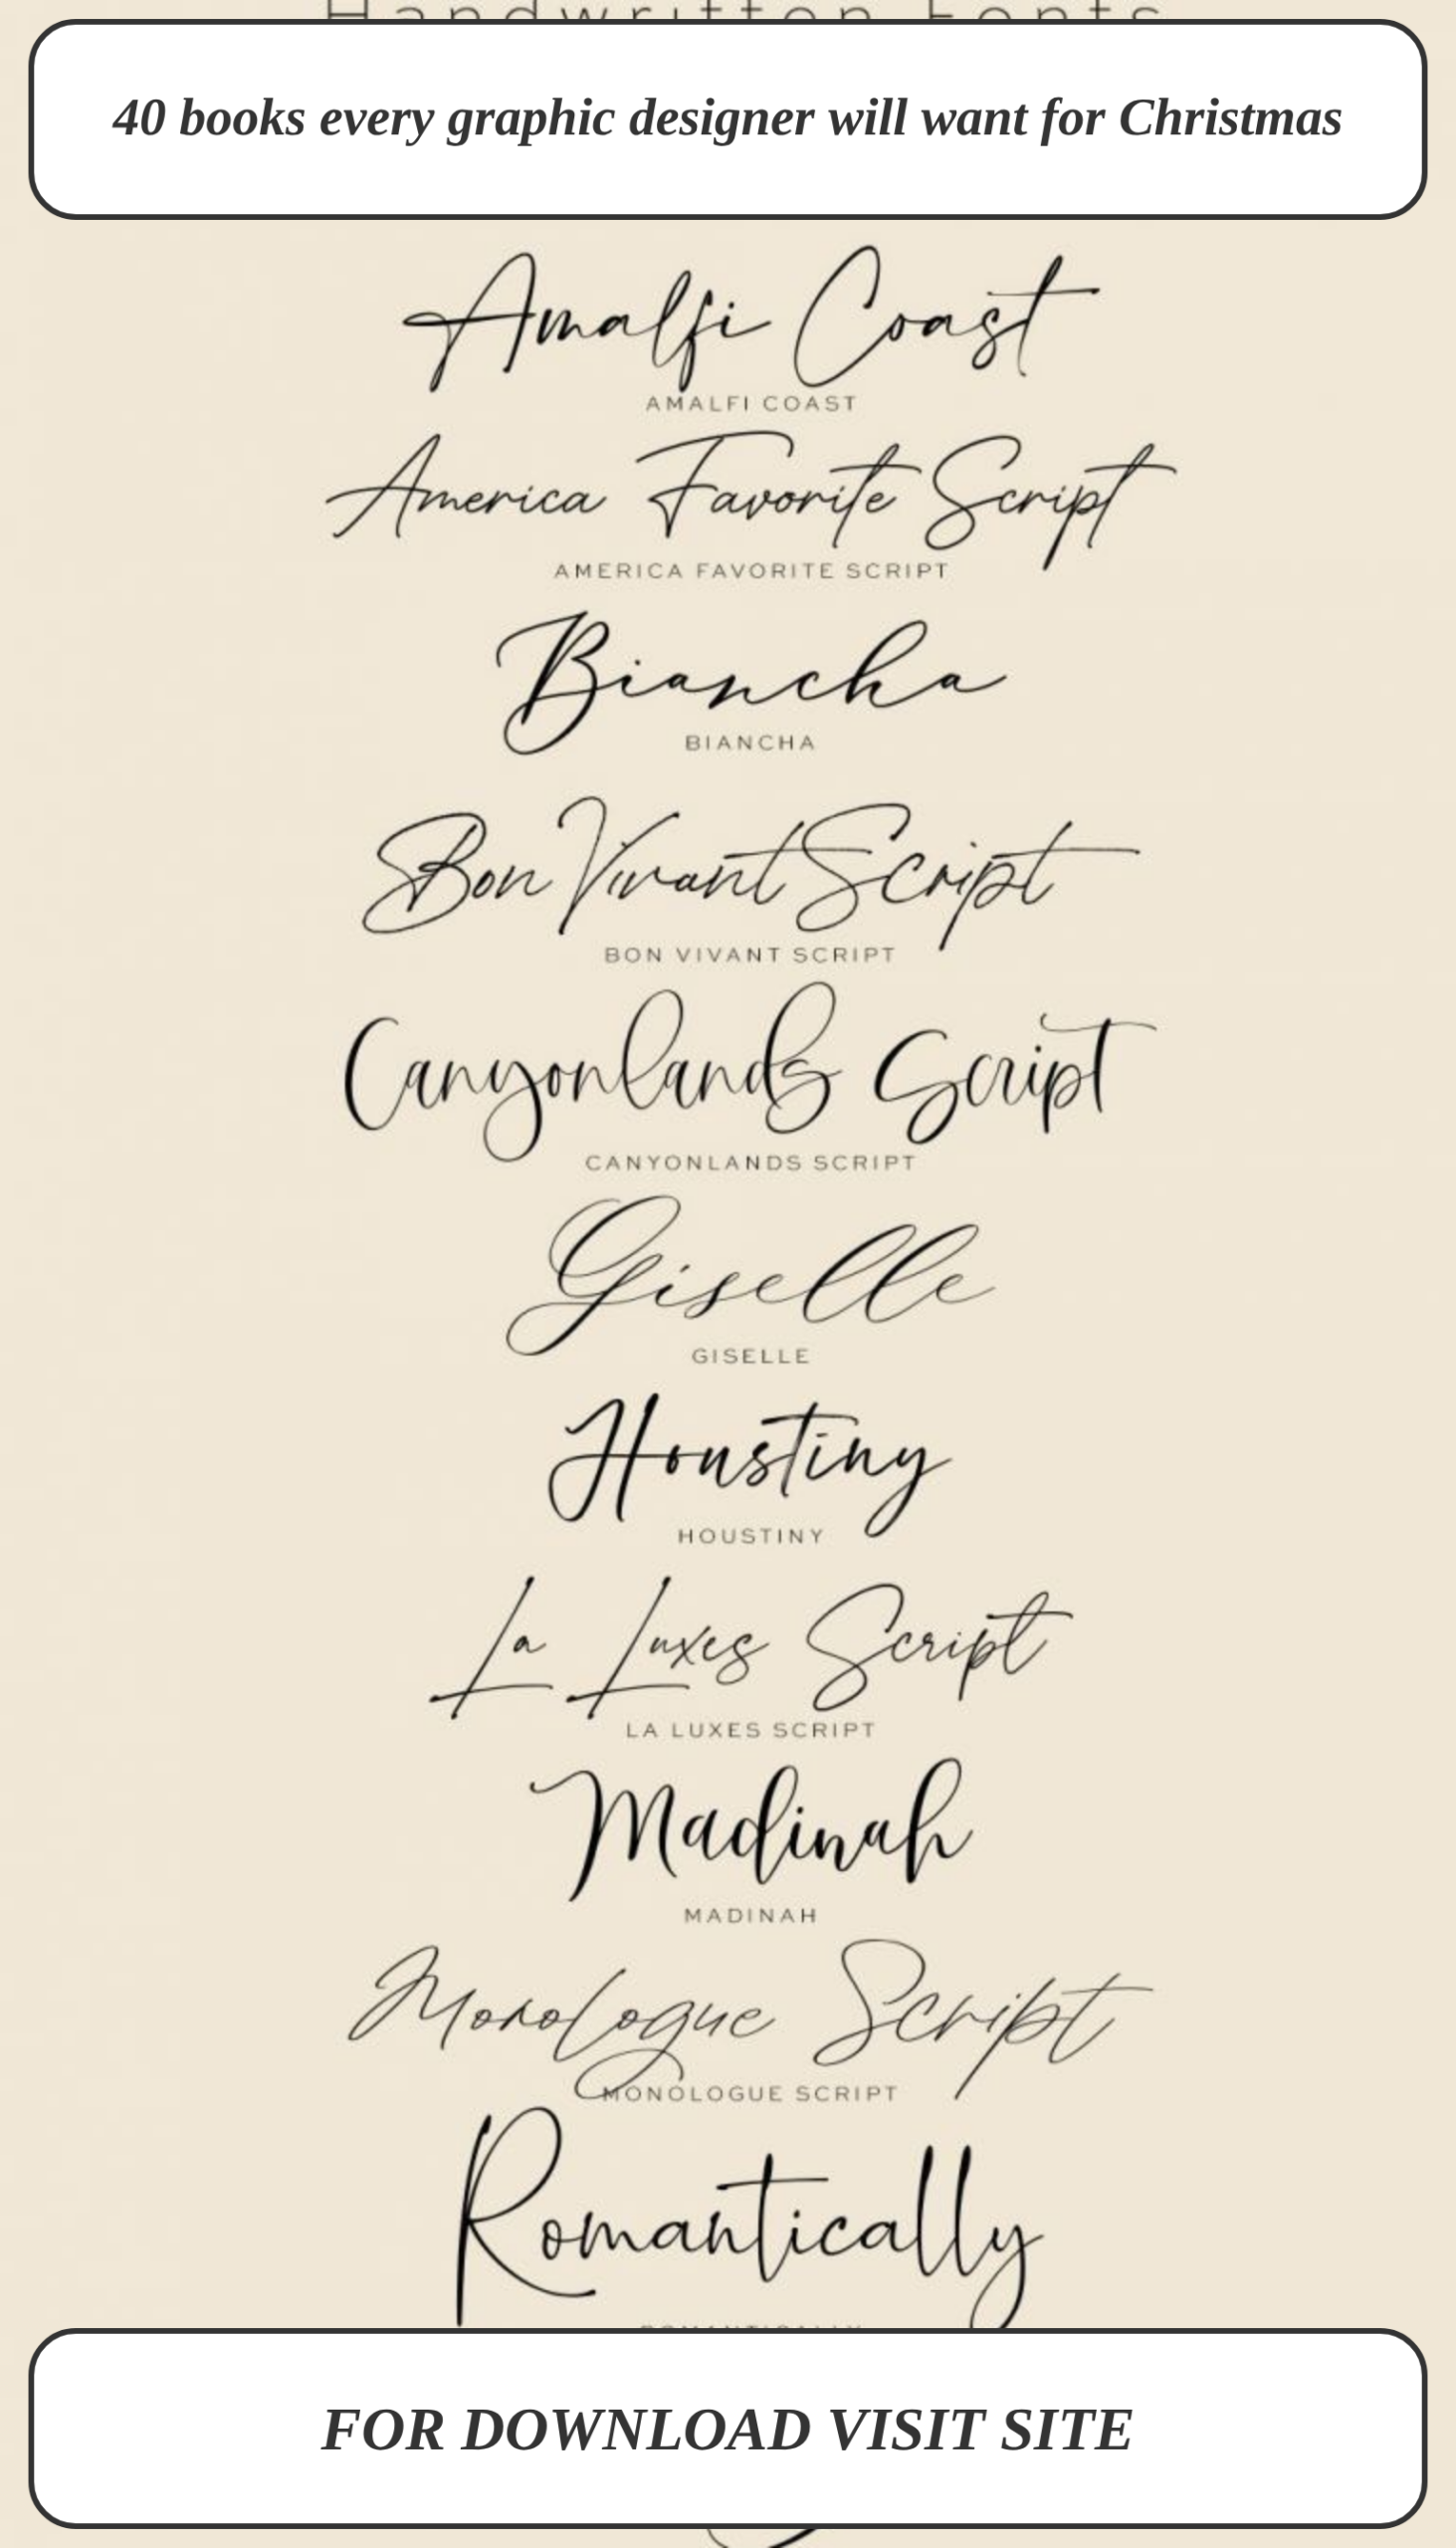 Handwritten Fonts
40 books every graphic designer will want for Christmas
Amalfi Coast
AMALFI COAST
America Favorite Script
AMERICA FAVORITE SCRIPT
Biancha
BIANCHA
Bon Vivant Script
BON VIVANT SCRIPT
Canyonlands Script
CANYONLANDS SCRIPT
Giselle
GISELLE
Houstiny
HOUSTINY
La Luxes Script
LA LUXES SCRIPT
Madinah
MADINAH
Monologue Script
MONOLOGUE SCRIPT
Romantically
ROMANTICALLY
FOR DOWNLOAD VISIT SITE